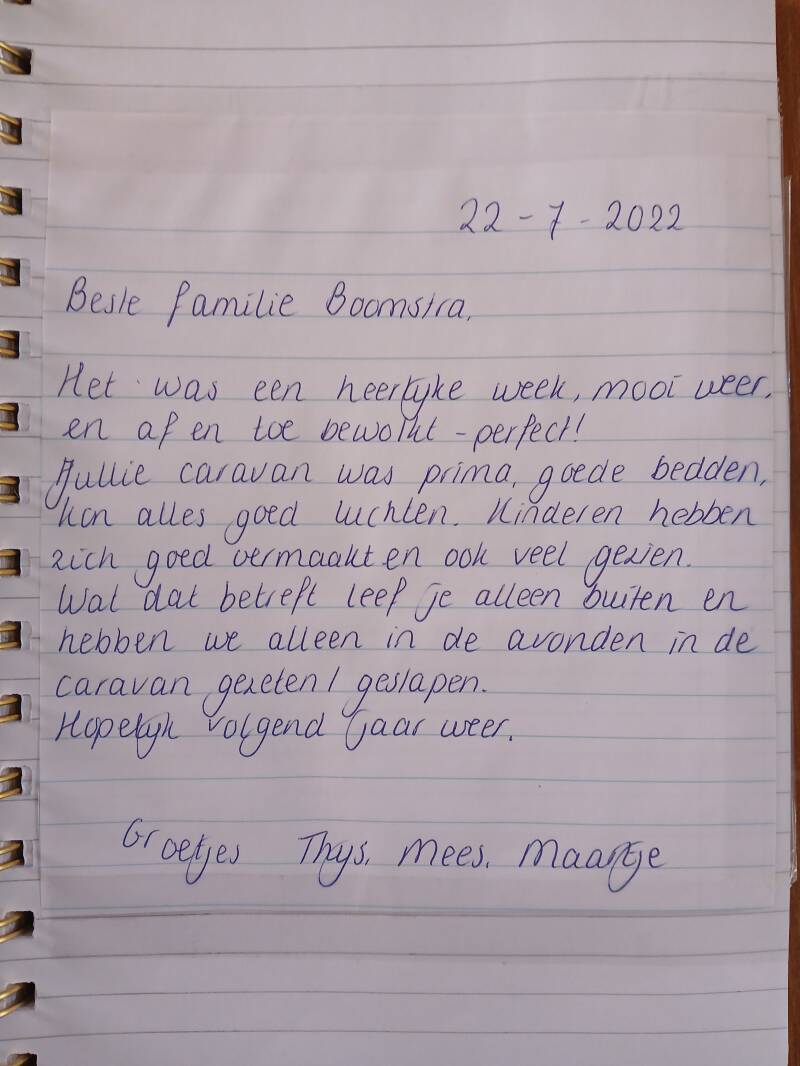 22-7-2022
Beste familie Boomstra,
Het was een heerlijke week, mooi weer,
en af en toe bewolkt - perfect!
Jullie caravan was prima, goede bedden,
kon alles goed luchten. Kinderen hebben
zich goed vermaakt en ook veel gezien.
Wat dat betreft leef je alleen buiten en
hebben we alleen in de avonden in de
caravan gezeten/geslapen.
Hopelijk volgend jaar weer.
Groetjes Thijs, Mees, Maartje